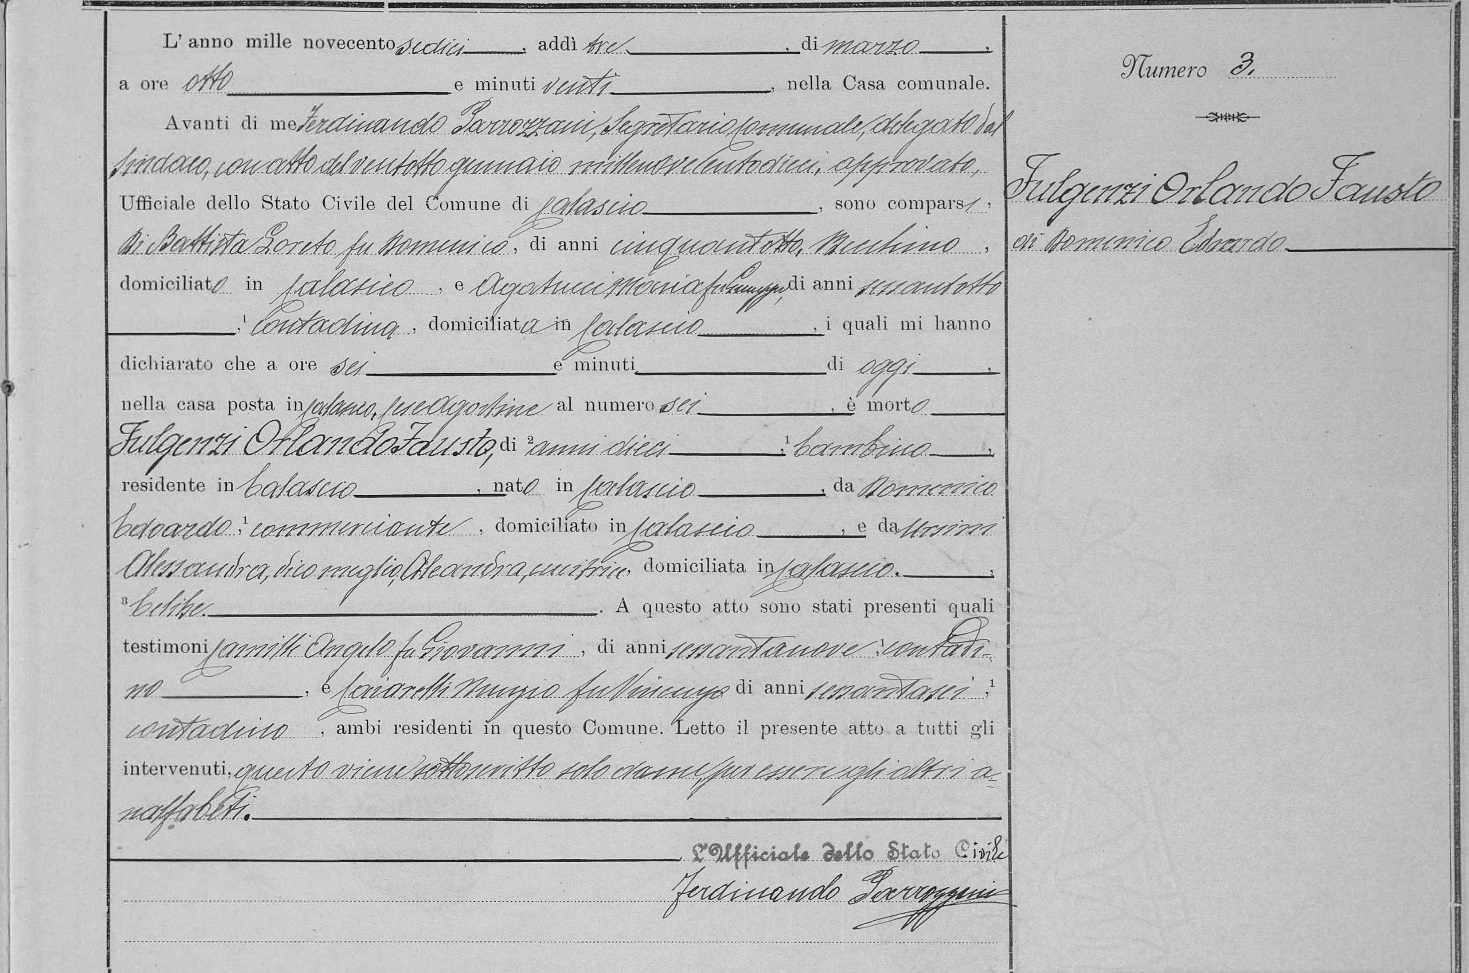 L'anno mille novecento sedici, addì tre, di marzo,
a ore otto e minuti venti, nella Casa comunale.
Avanti di me Ferdinando Parrozzani, Segretario comunale, delegato dal
Sindaco, con atto del ventotto gennaio millenovecentodieci, approvato,
Ufficiale dello Stato Civile del Comune di Calascio, sono comparsi,
Di Battista Loreto fu Domenico, di anni cinquantotto,
domiciliato in Calascio, e Agatucci Maria fu Giuseppe, di anni sessantotto
,¹ contadina, domiciliata in Calascio, i quali mi hanno
dichiarato che a ore sei e minuti di oggi,
nella casa posta in Calascio, al numero sei, è morto
Fulgenzi Orlando Fausto, di ² anni dieci,¹ bambino,
residente in Calascio, nato in Calascio, da Domenico
Edoardo,¹ commerciante, domiciliato in Calascio, e da Ursini
Alessandra, dico meglio, Aleandra, cucitrice, domiciliata in Calascio.,
³ Celibe. A questo atto sono stati presenti quali
testimoni Camilli Angelo fu Giovanni, di anni sessantanove,¹ contadi-
no, e Ciarelli Nunzio fu Vincenzo di anni sessantasei,¹
contadino, ambi residenti in questo Comune. Letto il presente atto a tutti gli
intervenuti, questo viene sottoscritto solo da me, per essere gli altri a-
nalfabeti.
L'Ufficiale dello Stato Civile
Ferdinando Parrozzani
Numero 3.
Fulgenzi Orlando Fausto
di Domenico Edoardo